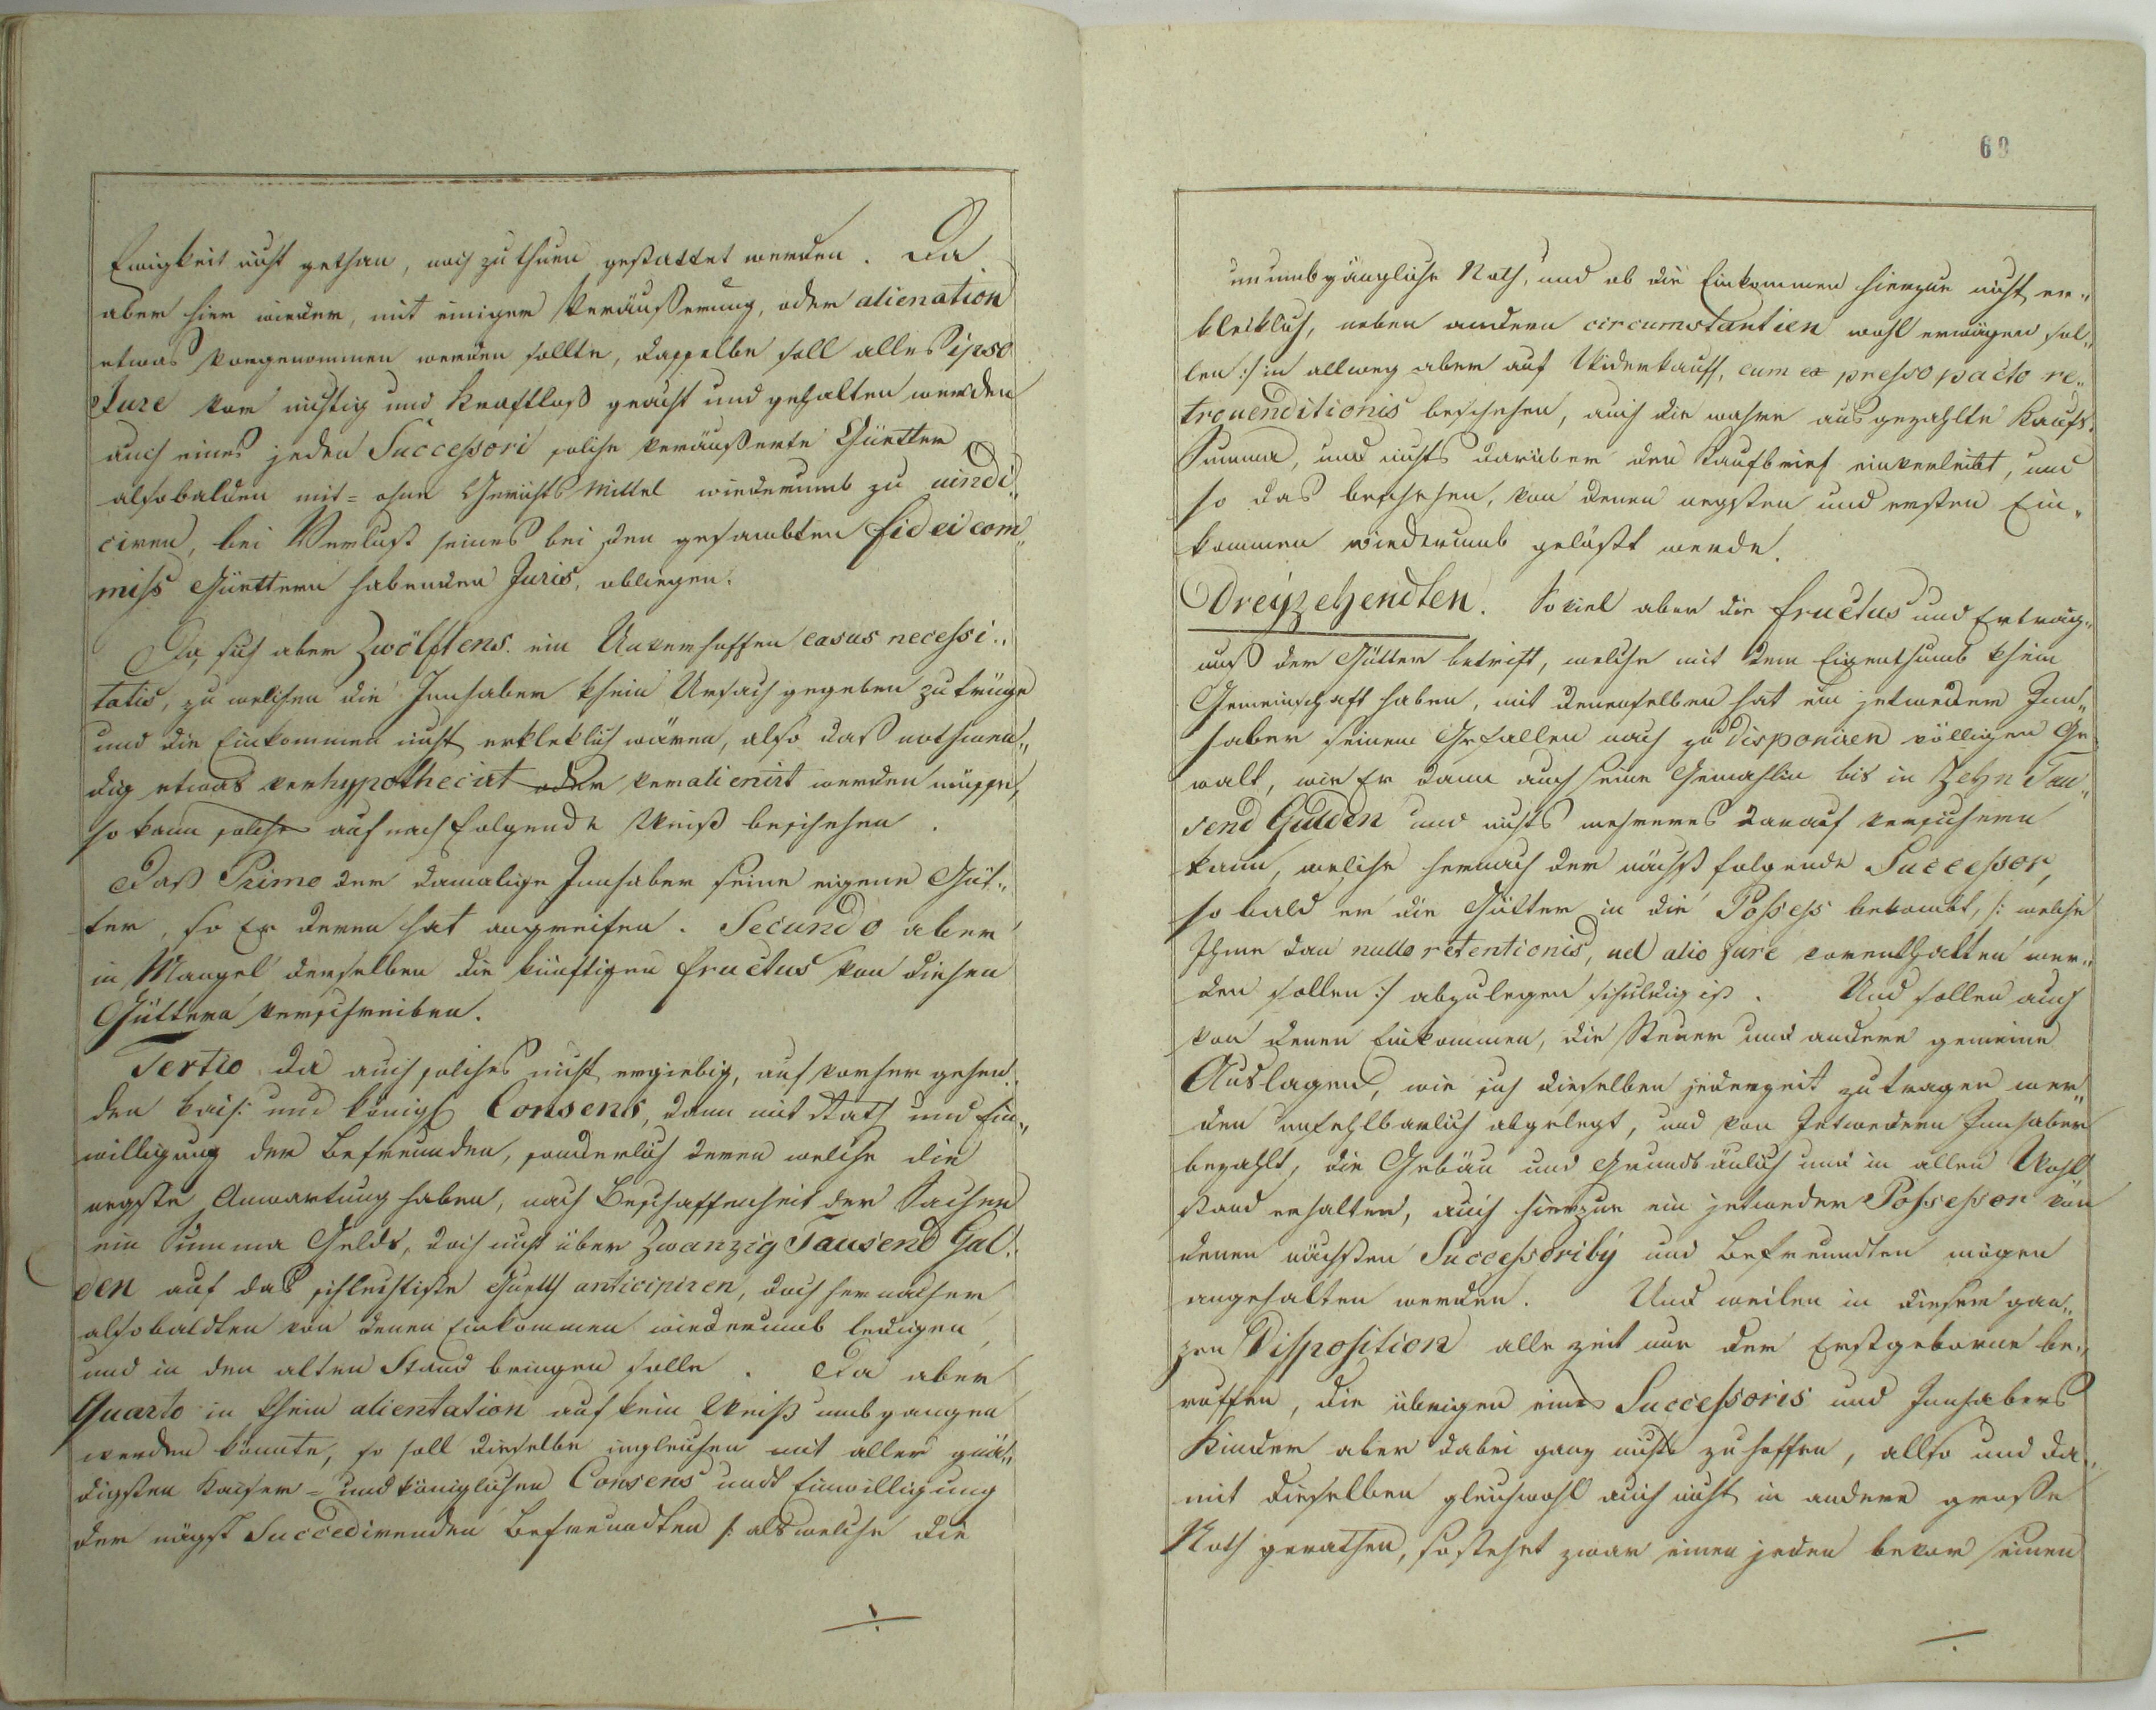 Ewigkeit nicht gethan, noch zu thuen gestattet werden. Da
aber hier wieder, mit einiger Veräußerung, oder alienation
etwas vorgenommen werden sollte, dasselbe soll alles ipso
Jure vor nichtig und Kraftloß geacht und gehalten werden
auch eines jeden Successori solche veräußerte Güetter
alsobalden mit= ohne Gerichts Mittel wiederumb zu vindi„
ciren, bei Verlust seines bei den gesambten fidei com„
miss Güettern habenden Juris, obliegen.
Da sich aber Zwölftens. ein Unverhoffen casus necessi„
tatis, zu welchen die Innhaber khein Ursach gegeben zutrüge
und die Einkommen nicht erkleklich wären, also daß nothwen„
dig etwas verhypothecirt oder veralienirt werden müsse,
so kann solches auf nachfolgende Weiß beschehen.
Daß Primo der damalige Innhaber seine eigene Güt„
ter, so Er deren hat angreifen. Secundo aber
in Mangel derselben die künftigen fructus von diesen
Güttern verschreiben.
Tertio da auch solches nicht ergiebig, auf vorher gehen„
den kais: und königl Consens, dann mit Rath und Ein„
willigung der Befreunden, sonderlich deren welche die
negste Anwartung haben, nach Beschaffenheit der Sachen
ein Summa Gelds, doch nicht über Zwanzig Tausend Gul„
den auf das schlechtiste Guetth anticipiren, doch hernacher
alsobaldten von denen Einkommen wiederumb ledigen
und in den alten Stand bringen solle. Da aber
Quarto in khein alientation auf kein Weiß umbgangen
werden könnte, so soll dieselbe ingleichen mit aller gnä„
digsten Kaiser= und königlichen Consens undt Einwilligung
der nägst Succedirenden Befreundten /: als welche die
69
unumbgängliche Noth, und ob die Einkommen hierzue nicht er„
kleiklich, neben andern circumstantien wohl erwägen sol„
len :/ in allweg aber auf Widerkauff, cum ex presso pacto re„
trouenditionis beschehen, auch die wahre ausgezahlte Kaufs„
Summa, und nichts darüber den Kaufbrief einverleibt, und
so das beschehen, von denen negsten und ersten Ein„
kommen wiederumb gelößt werde.
Dreyzehendten. So viel aber die fructus und Erträg„
nuß der Gütter betrift, welche mit dem Eigenthumb khein
Gemeinschaft haben, mit denenselben hat ein jetweder Inn„
haber seinem Gefallen nach zu disponiren völligen Ge
walt, wie Er dann auch seine Gemahlin bis in Zehn Tau„
send Gulden und nichts mehreres darauf versichern
kann, welche hernach der nächst folgende Successor,
so bald er die Gülter in die Possess bekombt, /: welche
Ihme dan nullo retentionis, vel alio jure vorenthalten wer„
den sollen :/ abzulegen schuldig ist. Und sollen auch
von denen Einkommen, die Steuer und andere gemeine
Auslagen, wie sich dieselben jederzeit zutragen wer„
den unfehlbarlich abgelegt, und von Jetwedern Innhaber
bezahlt, die Gebäu und Grundt äulich und in allen Wohl
stand erhalten, auch hierzue ein jetweder Possessor von
denen nächsten Successoribꝯ und Befreundten mögen
angehalten werden. Und weilen in dieser gan„
zen Disposition alle zeit nur der Erstgeborne be„
ruffen, die übrigen eines Successoris und Innhabers
Kinder aber dabei ganz nichts zu hoffen, allso und da„
mit dieselben gleichwohl auch nicht in andere große
Noth gerathen, so stehet zwar einen jeden bevor seinen